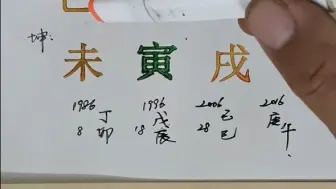 坤:
未 寅 戌
1986 1996 2006 2016
8 丁卯 18 戊辰 28 己巳 庚午